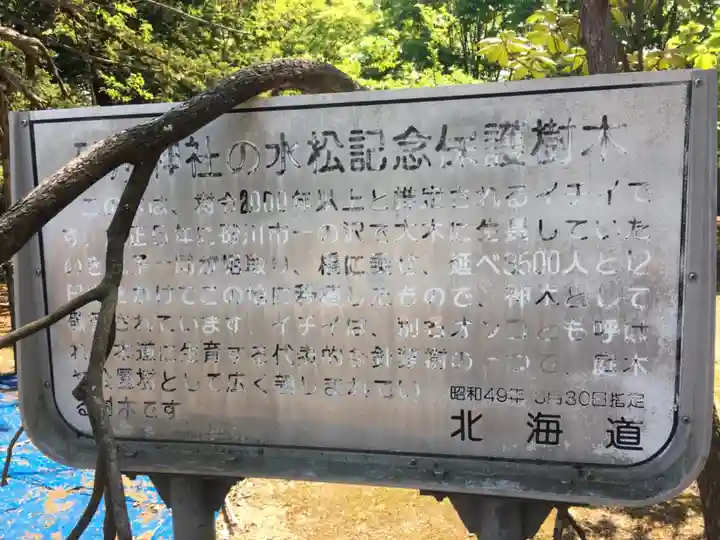 神社の水松記念保護樹木
この は、樹令2000年以上と推定されるイチイで
す。 正5年に砂川市一の沢で大木に生長していた
取り、橇に乗せ、延べ3500人と12
かけてこの地に移 したもので、神木として
されています。イチイは、別名オンコとも呼ば
れ 道に生育する代表的な針葉樹の一つで、庭木
として広く親しまれてい
る樹木です
昭和49年 月30日指定
北海道